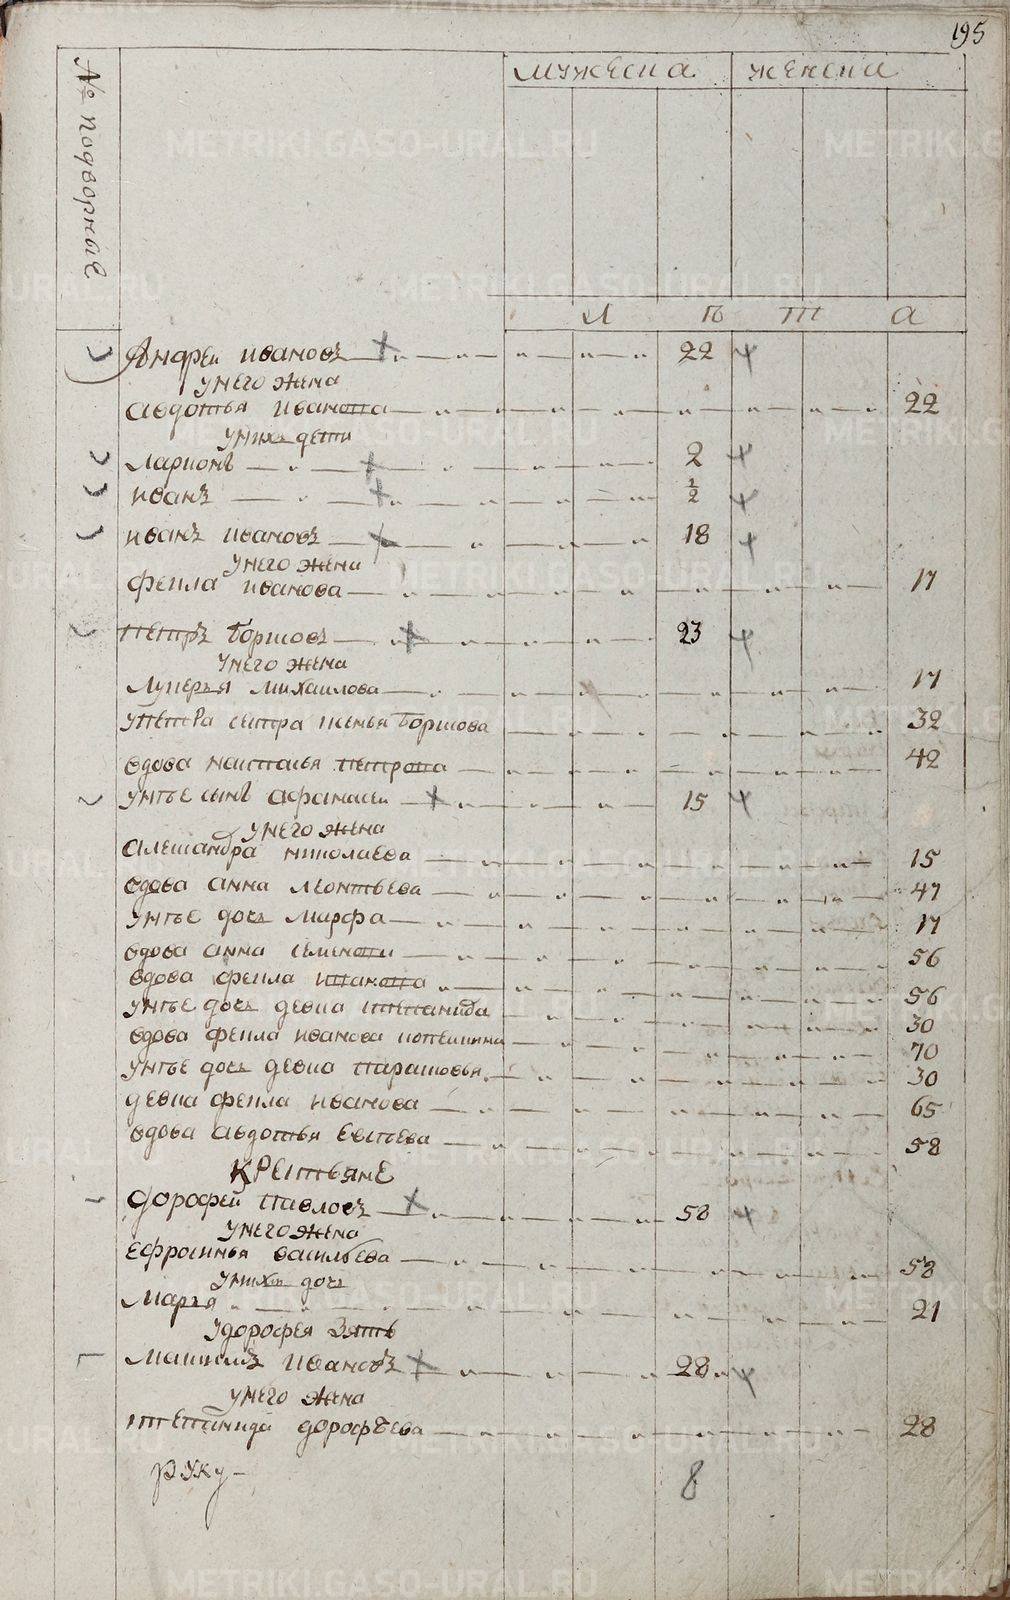 195
№ подворные
мужеска
женска
л ѣ т а
Андреи Ивановъ 22
у него жена
Авдотья Иванова 22
у нихъ дети
Ларионъ 2
Иванъ 1/2
Иванъ Ивановъ 18
у него жена
Фекла Иванова 17
Петръ Боршовъ 23
у него жена
Лукерья Михаилова 17
у Петра сестра Боршова 32
вдова Настасья Петрова 42
у нѣе сынъ Афанасеи 15
у него жена
Александра Николаева 15
вдова Анна Леонтьева 47
у нѣе дочь Марфа 17
вдова Анна Семенова 56
вдова Фекла 56
у нѣе дочь девка Степанида 30
вдова Фекла Иванова 70
у нѣе дочь девка Парасковья 30
девка Фекла Иванова 65
вдова Авдотья Евсѣева 58
Крестьяне
Дорофей Павловъ 58
у него жена
Ефросинья Васильева 58
у нихъ дочь
Марья 21
у Дорофея зять
Максимъ Ивановъ 28
у него жена
Степанида Дорофѣева 28
руку
8
METRIKI.GASO-URAL.RU